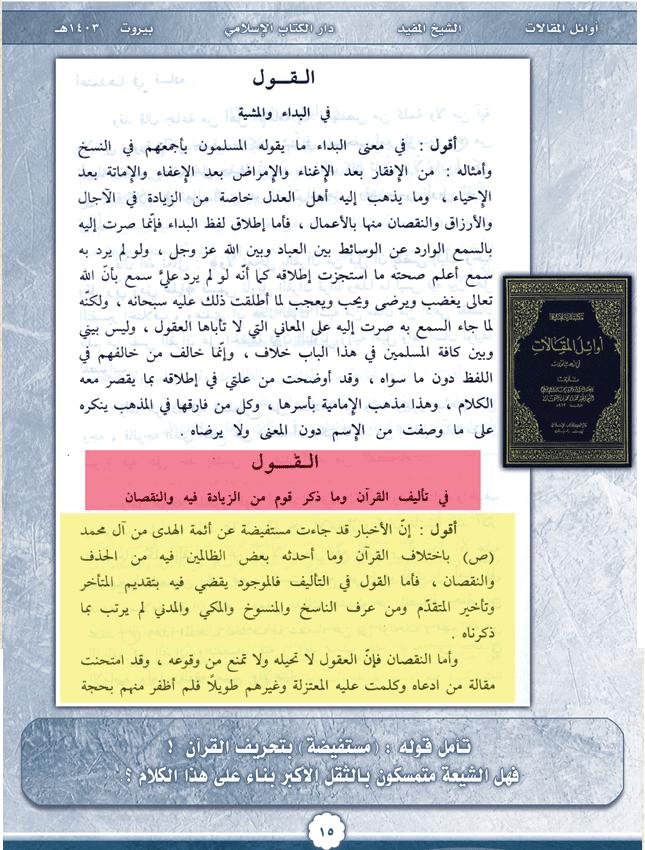 أوائل المقالات الشيخ المفيد دار الكتاب الإسلامي بيروت ١٤٠٣هـ
القول
في البداء والمشية
أقول : في معنى البداء ما يقوله المسلمون بأجمعهم في النسخ
وأمثاله : من الإفقار بعد الإغناء والإمراض بعد الإعفاء والإماتة بعد
الإحياء ، وما يذهب إليه أهل العدل خاصة من الزيادة في الآجال
والأرزاق والنقصان منها بالأعمال ، فأما إطلاق لفظ البداء فإنّما صرت إليه
بالسمع الوارد عن الوسائط بين العباد وبين الله عز وجل ، ولو لم يرد به
سمع أعلم صحته ما استجزت إطلاقه كما أنّه لو لم يرد عليَّ سمع بأنّ الله
تعالى يغضب ويرضى ويحب ويعجب لما أطلقت ذلك عليه سبحانه ، ولكنّه
لما جاء السمع به صرت إليه على المعاني التي لا تأباها العقول ، وليس بيني
وبين كافة المسلمين في هذا الباب خلاف ، وإنّما خالف من خالفهم في
اللفظ دون ما سواه ، وقد أوضحت من علتي في إطلاقه بما يقصر معه
الكلام ، وهذا مذهب الإمامية بأسرها ، وكل من فارقها في المذهب ينكره
على ما وصفت من الإسم دون المعنى ولا يرضاه .
القول
في تأليف القرآن وما ذكر قوم من الزيادة فيه والنقصان
أقول : إنّ الأخبار قد جاءت مستفيضة عن أئمة الهدى من آل محمد
(ص) باختلاف القرآن وما أحدثه بعض الظالمين فيه من الحذف
والنقصان ، فأما القول في التأليف فالموجود يقضي فيه بتقديم المتأخر
وتأخير المتقدّم ومن عرف الناسخ والمنسوخ والمكي والمدني لم يرتب بما
ذكرناه .
وأما النقصان فإنّ العقول لا تحيله ولا تمنع من وقوعه ، وقد امتحنت
مقالة من ادعاه وكلمت عليه المعتزلة وغيرهم طويلاً فلم أظفر منهم بحجة
أوائل المقالات
تأمل قوله : (مستفيضة) بتحريف القرآن !
فهل الشيعة متمسكون بالثقل الاكبر بناء على هذا الكلام ؟
١٥